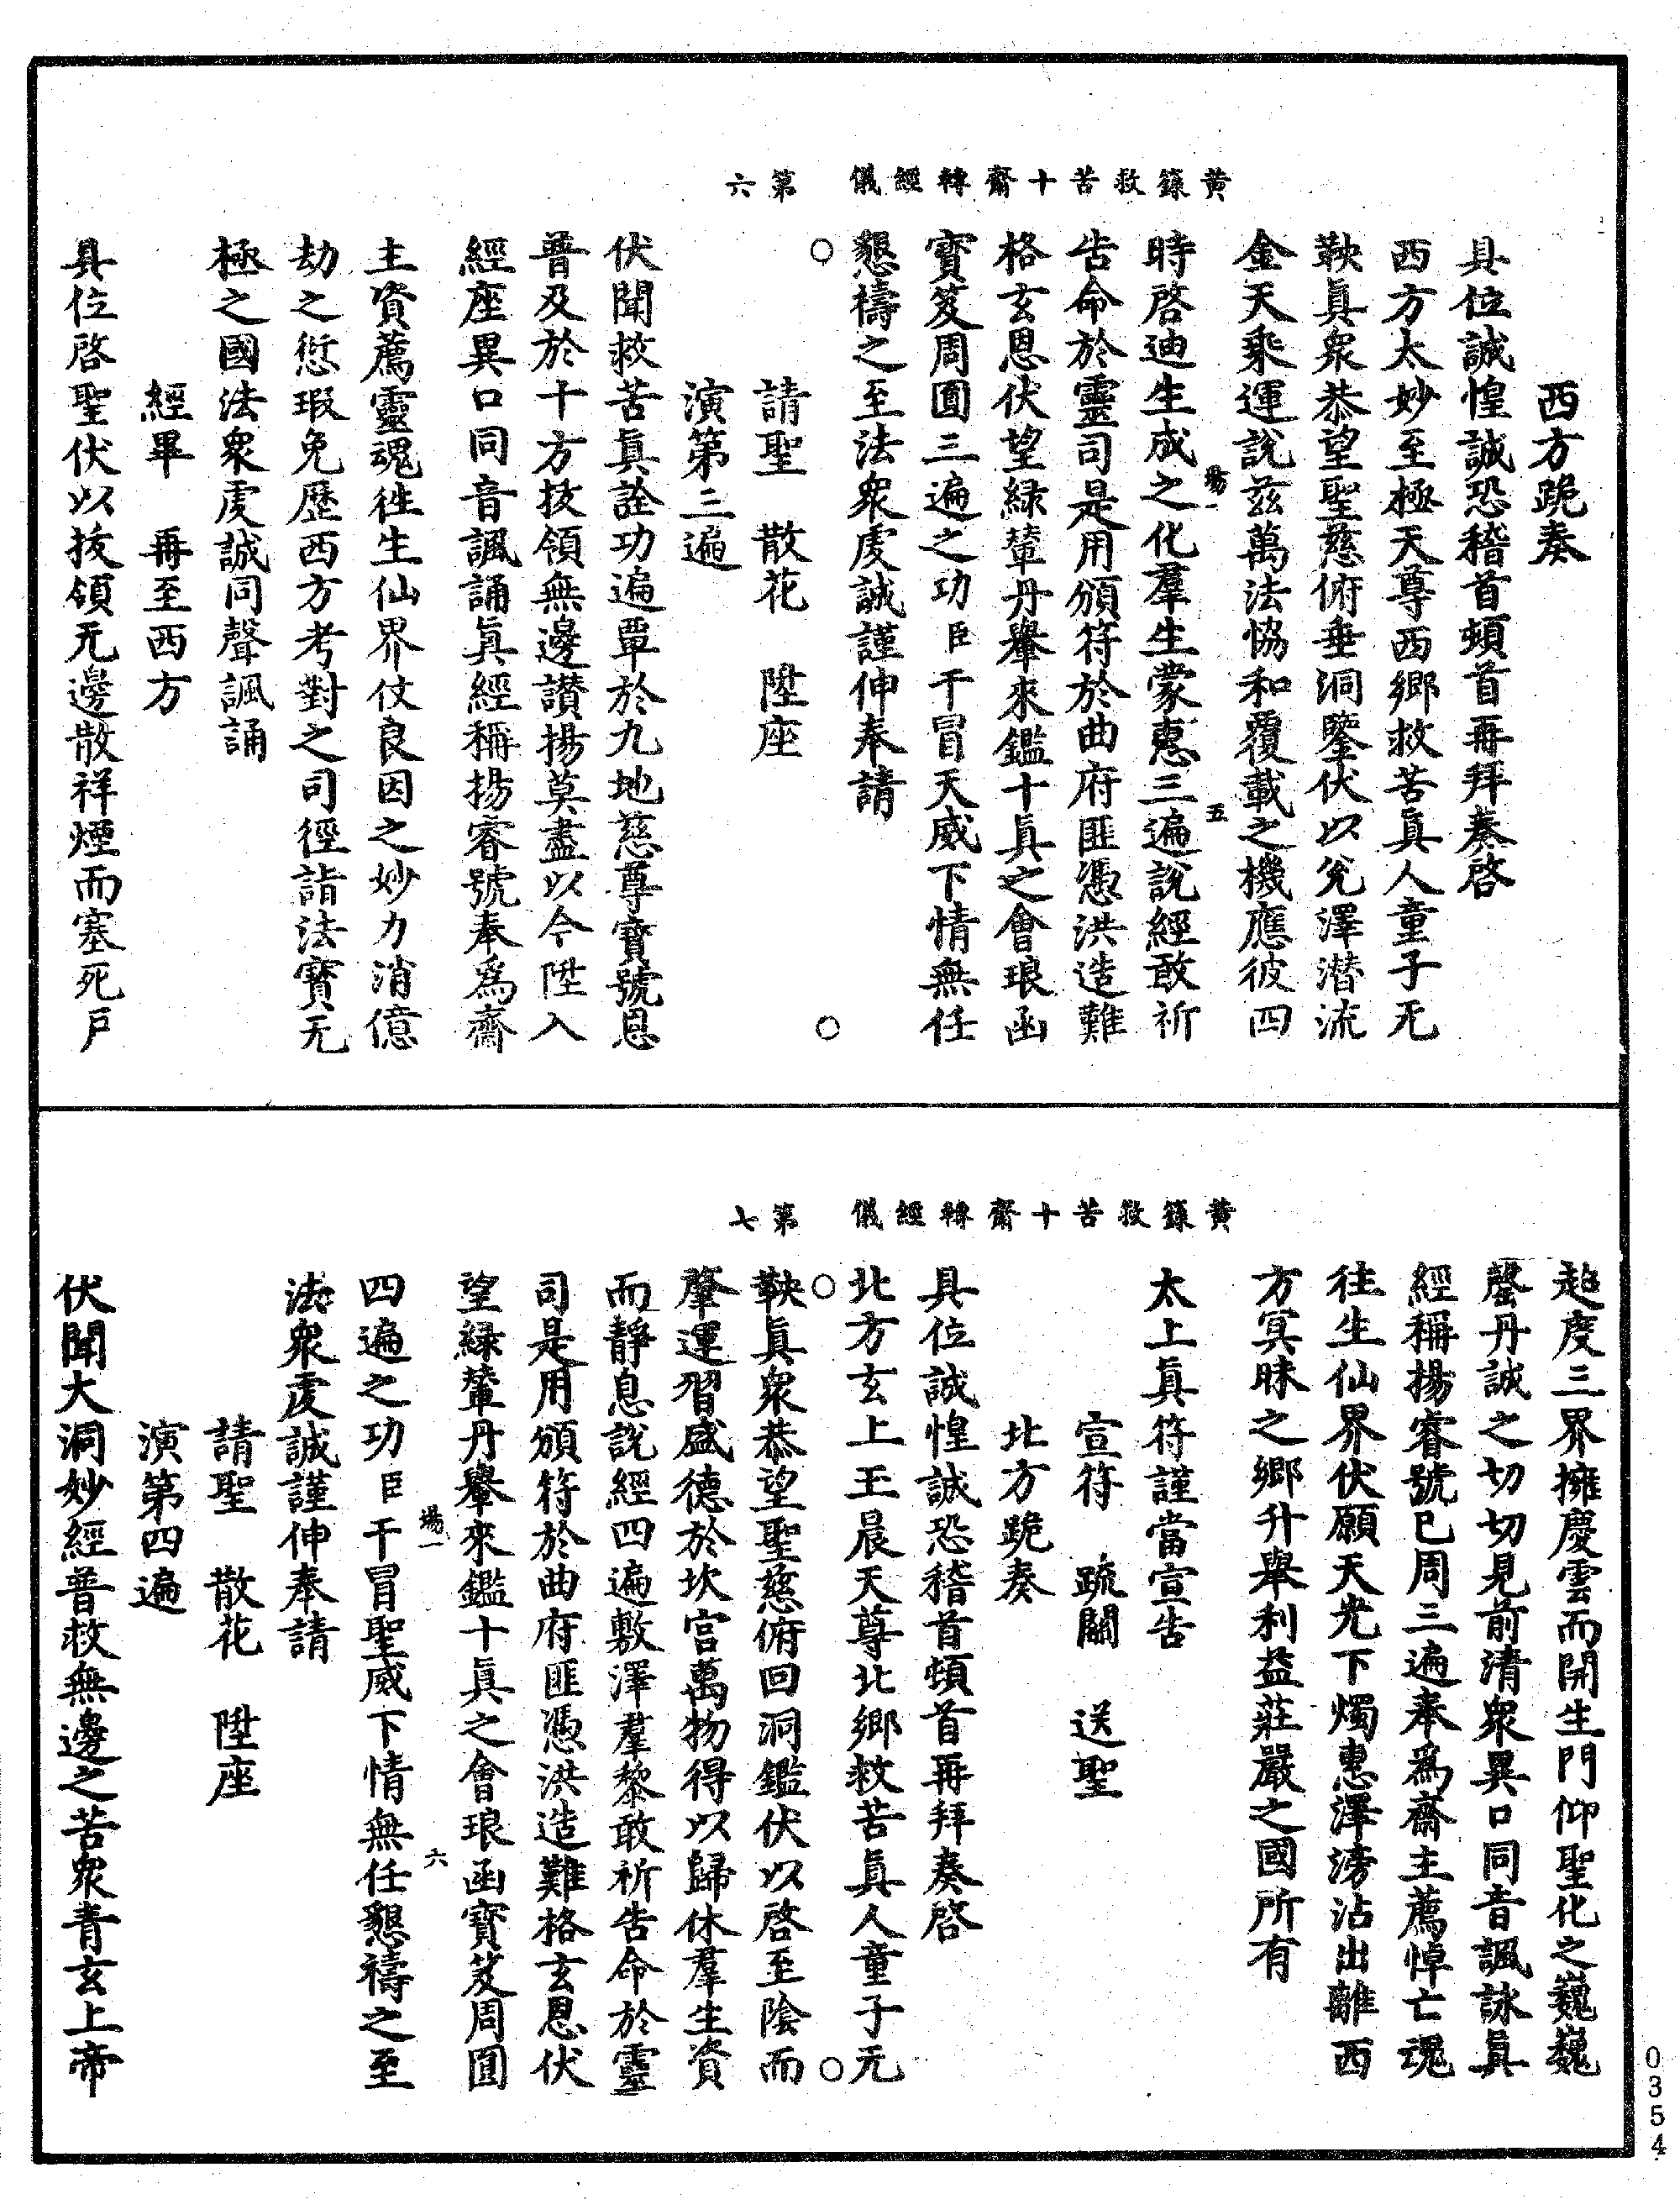 黃籙救苦十齋轉經儀　第六
西方跪奏
具位誠惶誠恐稽首頓首再拜奏啓
西方太妙至極天尊西鄉救苦眞人童子无
鞅眞衆恭望聖慈俯垂洞鑒伏以兌澤潜流
金天乘運說兹萬法恊和覆載之機應彼四
塲一　五
時啓迪生成之化羣生蒙惠三遍說經敢祈
告命於靈司是用頒符於曲府匪憑洪造難
格玄恩伏望緑輦丹轝來鑑十眞之會琅函
寶笈周圓三遍之功臣干冒天威下情無任
懇禱之至法衆虔誠謹伸奉請
○　○
請聖　散花　陞座
演第三遍
伏聞救苦眞詮功遍覃於九地慈尊寶號恩
普及於十方拔領無邊讚揚莫盡以今陞入
經座異口同音諷誦眞經稱揚睿號奉爲齋
主資薦靈魂徃生仙界仗良因之妙力消億
劫之愆瑕免歷西方考對之司徑詣法寳无
極之國法衆虔誠同聲諷誦
經畢　再至西方
具位啓聖伏以拔領无邊散祥煙而塞死戶
黃籙救苦十齋轉經儀　第七
超度三界擁慶雲而開生門仰聖化之巍巍
罄丹誠之切切見前清衆異口同音諷詠眞
經稱揚睿號已周三遍奉爲齋主薦悼亡魂
往生仙界伏願天光下燭惠澤滂沾出離西
方冥昧之鄉升舉利益莊嚴之國所有
太上眞符謹當宣告
宣符　疏關　送聖
北方跪奏
具位誠惶誠恐稽首頓首再拜奏啓
北方玄上玉晨天尊北鄉救苦眞人童子元
○　○
鞅眞衆恭望聖慈俯回洞鑑伏以啓至隂而
肇運習盛德於坎宮萬物得以歸休羣生資
而靜息說經四遍敷澤羣黎敢祈告命於靈
司是用頒符於曲府匪憑洪造難格玄恩伏
望緑輦丹轝來鑑十眞之會琅函寶笈周圓
塲一　六
四遍之功臣干冒聖威下情無任懇禱之至
法衆虔誠謹伸奉請
請聖　散花　陞座
演第四遍
伏聞大洞妙經普救無邊之苦衆青玄上帝
0354